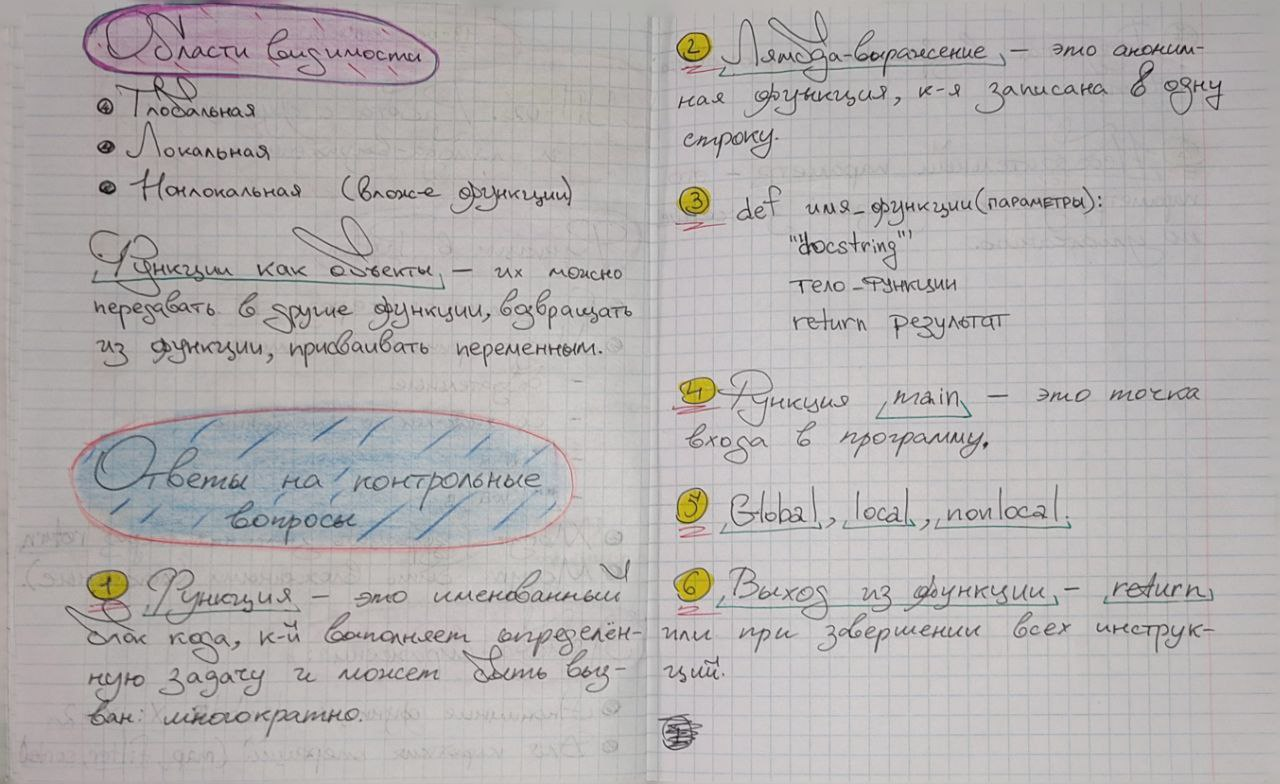 Области видимости
Глобальная
Локальная
Нонлокальная (влож-е функции)
Функции как объекты, – их можно
передавать в другие функции, возвращать
из функции, присваивать переменным.
Ответы на контрольные
вопросы
1 Функция – это именованный
блок кода, к-й выполняет определён-
ную задачу и может быть выз-
ван: многократно.
2 Лямбда-выражение, – это аноним-
ная функция, к-я записана в одну
строку.
3 def имя_функции(параметры):
"docstring"
тело_функции
return результат
4 Функция main – это точка
входа в программу.
5 Global, local, nonlocal.
6 Выход из функции, – return,
или при завершении всех инструк-
ций.